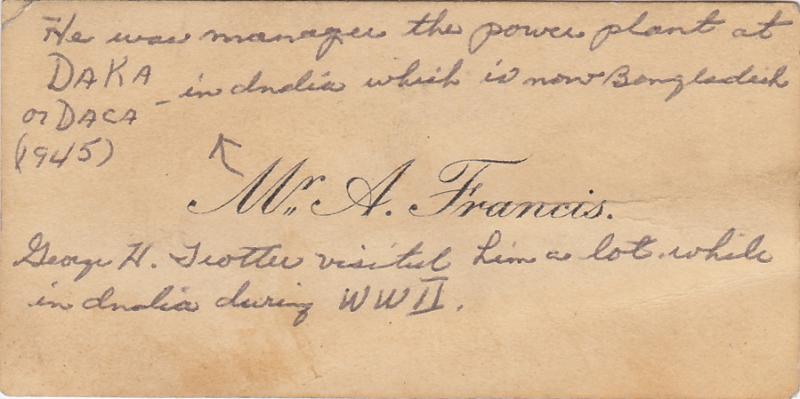 He was manager the power plant at
DAKA - in India which is now Bangladesh
or DACA
(1945)
Mr. A. Francis.
George H. Trotter visited him a lot while
in India during WWII.